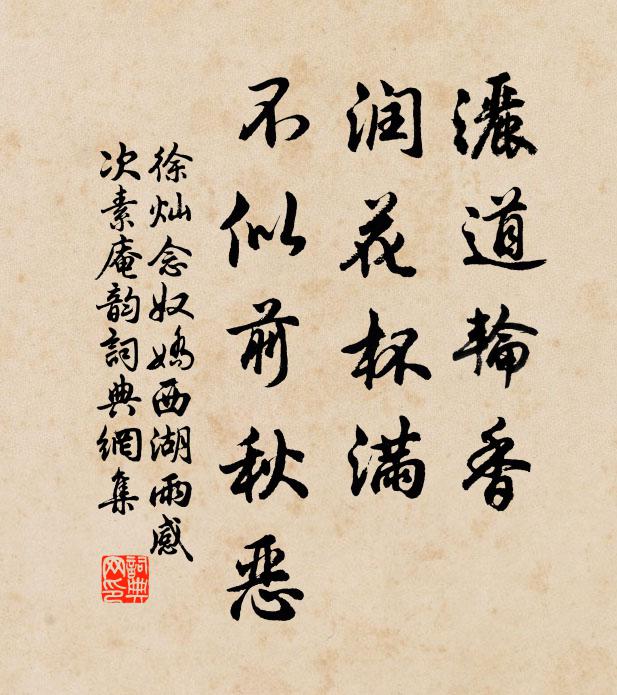 灑道輪香
润花杯满
不似前秋恶
徐灿念奴娇西湖雨感
次素庵韵詞典網集
詞典网印